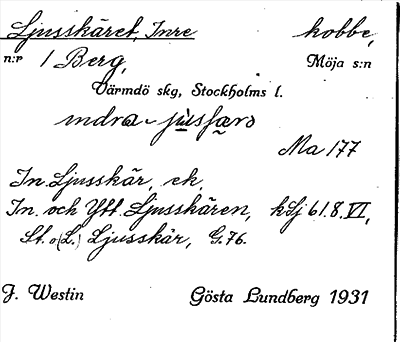 Ljusskäret, Inre kobbe,
n:r 1 Berg, Möja s:n
Värmdö skg, Stockholms l.
Ma 177
In. Ljusskär, ek.
In. och Ytt. Ljusskären, kSj 61.8.VI,
St. o (L.) Ljusskär, G.76.
J. Westin Gösta Lundberg 1931